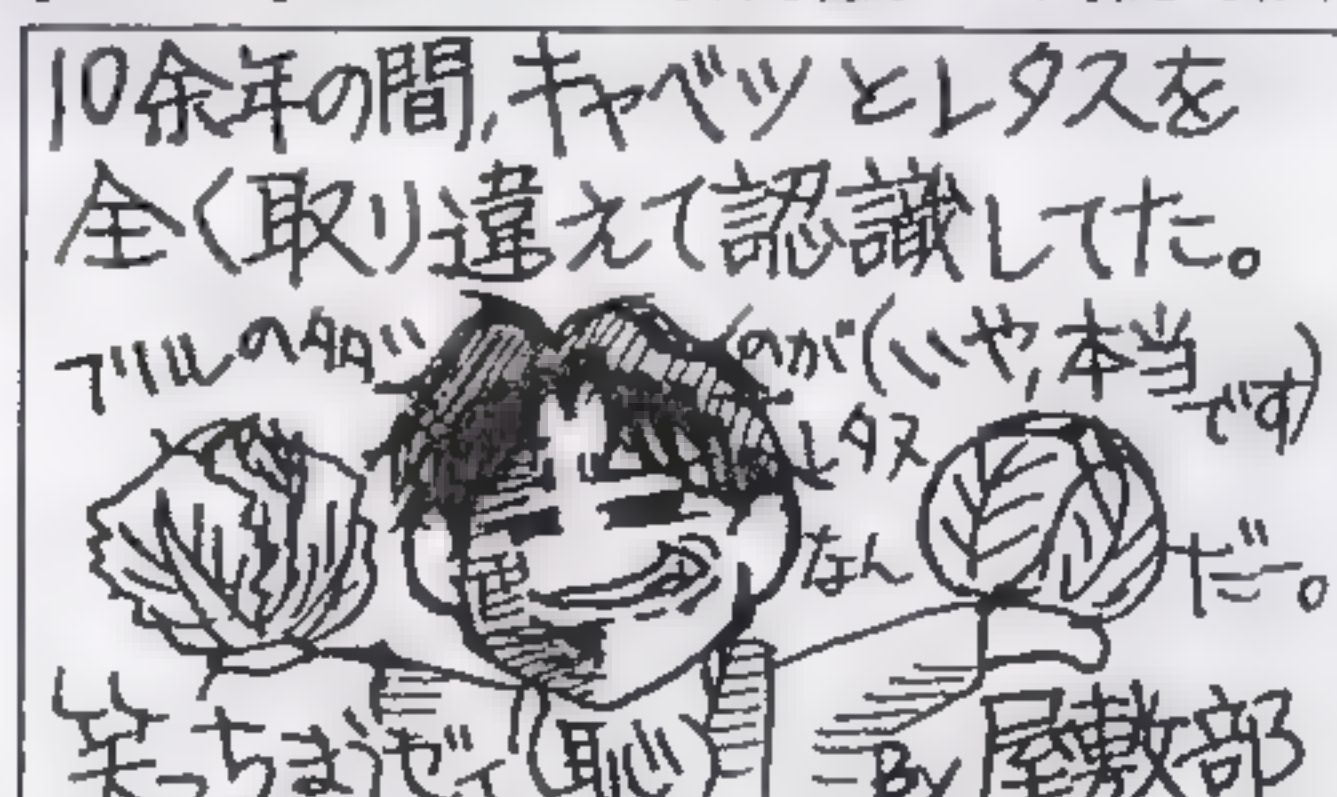 10余年の間,キャベツとレタスを
全く取り違えて認識してた。
のが(いや,本当です)
レタス
なんだ。
笑っちまうゼィ(恥)
By 屋敷部